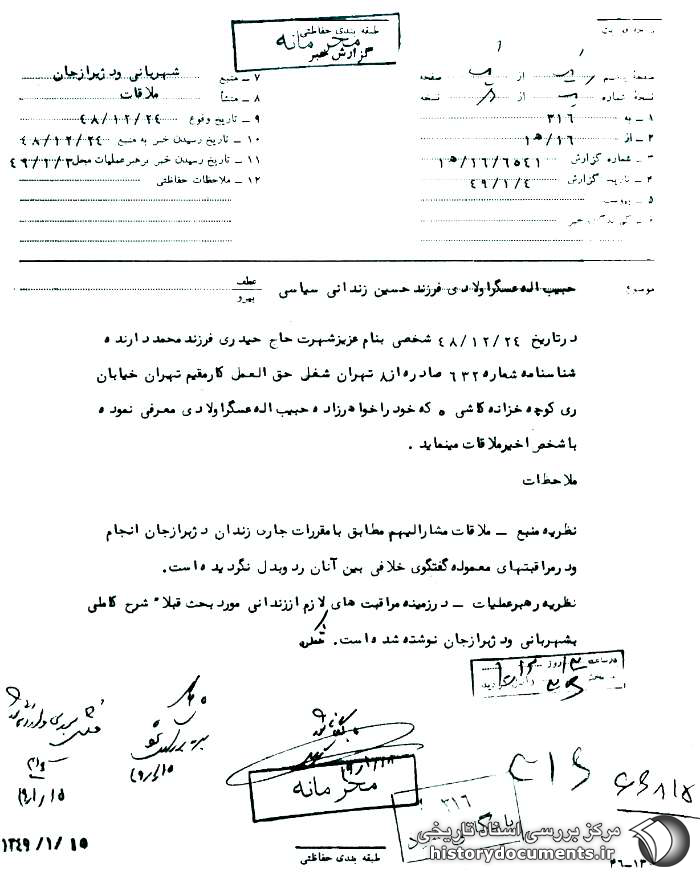 طبقه بندی حفاظتی
محرمانه
گزارش خبر
صفحهٔ یک از یک صفحه
نسخهٔ شماره از نسخه
۱ ـ به ۳۱۶
۲ ـ از ۱۶/ﻫ۱
۳ ـ شماره گزارش ۶۵۴۱/۱۶/ﻫ۱
۴ ـ تاریخ گزارش ۴۹/۱/۴
۵ ـ پیوست
۷ ـ منبع شهربانی ودژبرازجان
۸ ـ منشأ ملاقات
۹ ـ تاریخ وقوع ۴۸/۱۲/۲۴
۱۰ ـ تاریخ رسیدن خبر به منبع ۴۸/۱۲/۲۴
۱۱ ـ تاریخ رسیدن خبر برهبرعملیات محل ۴۹/۱/۳
۱۲ ـ ملاحظات حفاظتی
موضوع حبیب اله عسگراولادی فرزند حسین زندانی سیاسی
عطف
پیرو
درتاریخ ۴۸/۱۲/۲۴ شخصی بنام عزیزشهرت حاج حیدری فرزند محمد دارنده
شناسنامه شماره ۶۳۲ صادره از۸ تهران شغل حق العمل کارمقیم تهران خیابان
ری کوچه خزانه کاشی ۰ که خود را خواهرزاده حبیب اله عسگراولادی معرفی نموده
باشخص اخیرملاقات مینماید .
ملاحظات
نظریه منبع ـ ملاقات مشارالیهم مطابق بامقررات جاری زندان دژبرازجان انجام
ودرمراقبتهای معموله گفتگوی خلافی بین آنان ردوبدل نگردیده است.
نظریه رهبرعملیات ـ درزمینه مراقبت های لازم اززندانی مورد بحث قبلاً شرح کاملی
بشهربانی ودژبرازجان نوشته شده است.
درساعت روز
محرمانه
۳۱۶
طبقه بندی حفاظتی
۱۳۴۹/۱/۱۵
مرکز بررسی اسناد تاریخی
historydocuments.ir